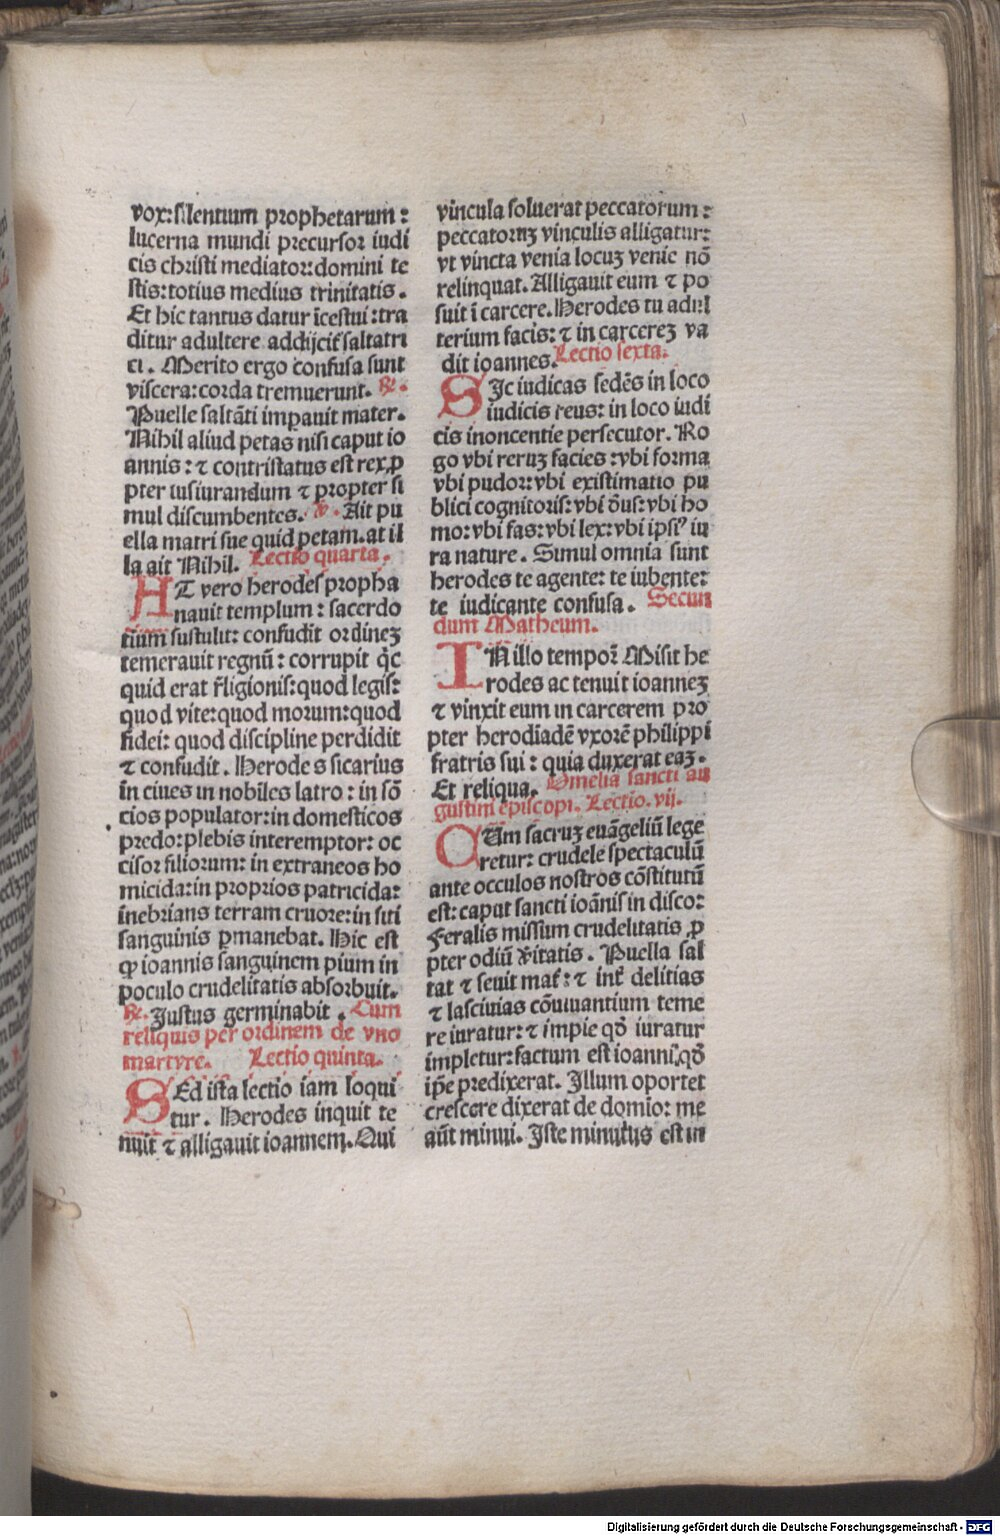 vox: silentium prophetarum:
lucerna mundi precursor iudi
cis christi mediator: domini te
stis: totius medius trinitatis.
Et hic tantus datur īcestui: tra
ditur adultere addijcit͛ saltatri
ci. Merito ergo confusa sunt
viscera: corda tremuerunt. ℟.
Puelle saltāti imꝑauit mater.
Nihil aliud petas nisi caput io
annis: ⁊ contristatus est rex ꝓ
pter iusiurandum ⁊ propter si
mul discumbentes. ℣. Ait pu
ella matri sue quid petam. at il
la ait Nihil. Lectio quarta.
AT vero herodes propha
nauit templum: sacerdo
tium sustulit: confudit ordineꝫ
temerauit regnū: corrupit q̇c
quid erat r̄ligionis: quod legis:
quod vite: quod morum: quod
fidei: quod discipline perdidit
⁊ confudit. Herodes sicarius
īn ciues in nobiles latro: in sō
cios populator: in domesticos
predo: plebis interemptor: oc
cisor filiorum: in extraneos ho
micida: in proprios patricida:
īnebrians terram cruore: in siti
sanguinis ꝑmanebat. Hic est
ꝙ ioannis sanguinem pium in
poculo crudelitatis absorbuit.
℟. Justus germinabit. Cum
reliquis per ordinem de vno
martyre. Lectio quinta.
SEd ista lectio iam loqui
tur. Herodes inquit te
nuit ⁊ alligauit ioannem. Qui
vincula soluerat peccatorum:
peccatoruꝫ vinculis alligatur:
vt vincta venia locuꝫ venie nō
relinquat. Alligauit eum ⁊ po
suit ī carcere. Herodes tu adul
terium facis: ⁊ in carcereꝫ va
dit ioannes. Lectio sexta.
SIc iudicas sedēs in loco
iudicis reus: in loco iudi
cis inoncentie persecutor. Ro
go vbi reruꝫ facies: vbi forma
vbi pudor: vbi existimatio pu
blici cognitoris: vbi d̄us: vbi ho
mo: vbi fas: vbi lex: vbi ipsiꝰ iu
ra nature. Simul omnia sunt
herodes te agente: te iubente:
te iudicante confusa. Secun
dum Matheum.
IN illo tempor̄ Misit he
rodes ac tenuit ioanneꝫ
⁊ vinxit eum in carcerem pro
pter herodiadē vxorē philippi
fratris sui: quia duxerat eaꝫ.
Et reliqua. Omelia sancti au
gustini episcopi. Lectio. vij.
CUm sacruꝫ euāgeliū lege
retur: crudele spectaculū
ante occulos nostros cōstitutū
est: caput sancti ioānis in disco:
Feralis missum crudelitatis ꝓ
pter odiū v̄itatis. Puella sal
tat ⁊ seuit mat͛: ⁊ int͛ delitias
⁊ lasciuias cōuiuantium teme
re iuratur: ⁊ impie qō iuratur
impletur: factum est ioanni: qō
ip̄e predixerat. Illum oportet
crescere dixerat de domīo: me
aūt minui. Iste minutus est in
Digitalisierung gefördert durch die Deutsche Forschungsgemeinschaft - DFG